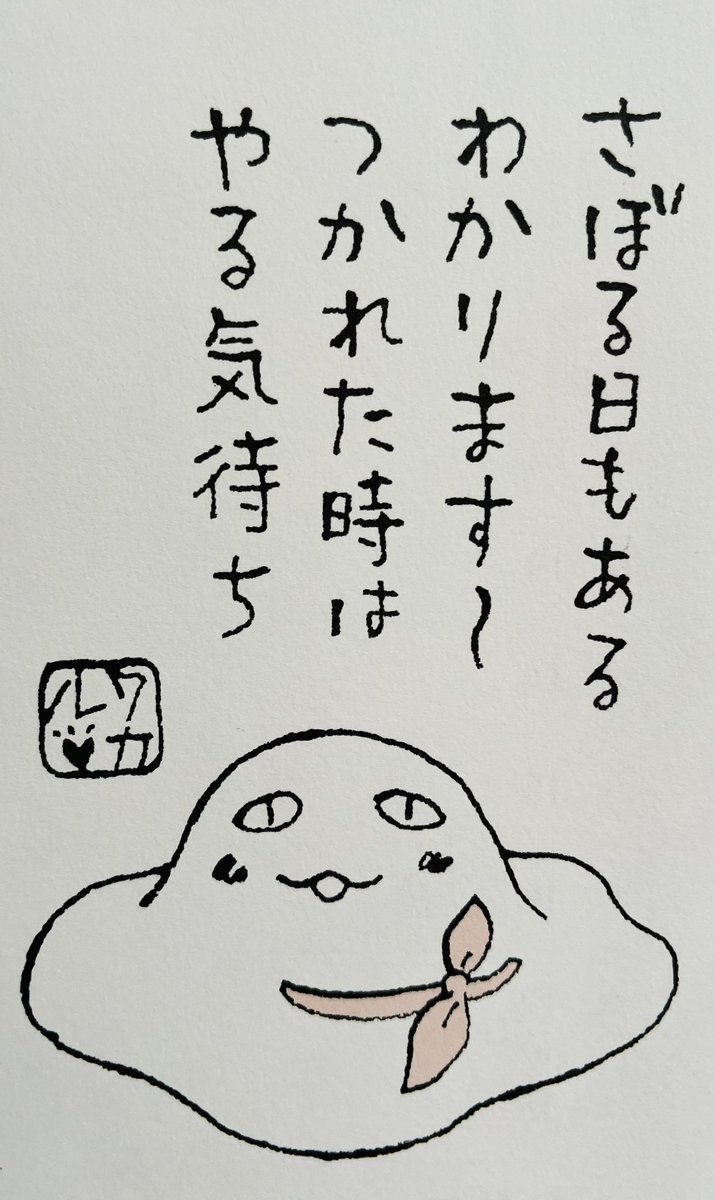 さぼる日もある
わかります〜
つかれた時は
やる気待ち
ワカル